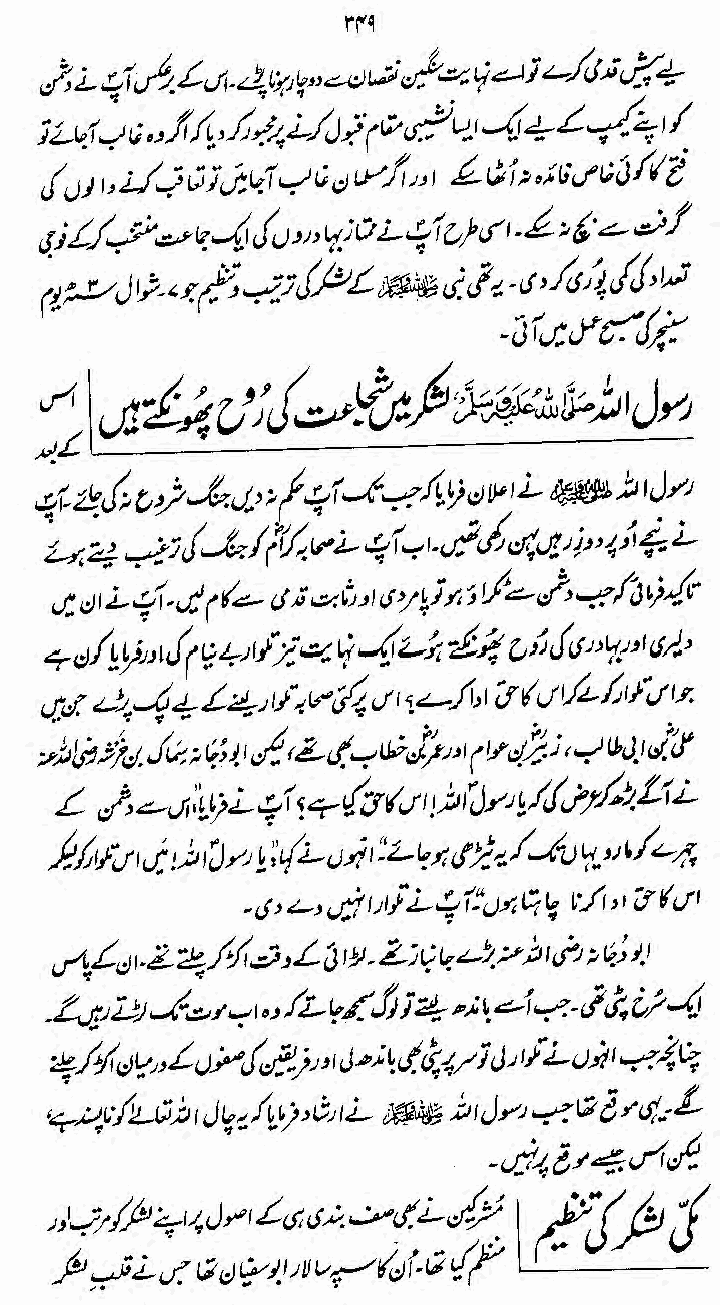 ۳۴۹
لیے پیش قدمی کرے تو اسے نہایت سنگین نقصان سے دوچار ہونا پڑے۔ اس کے برعکس آپؐ نے دشمن
کو اپنے کیمپ کے لیے ایک ایسا نشیبی مقام قبول کرنے پر مجبور کر دیا کہ اگر وہ غالب آجائے تو
فتح کا کوئی خاص فائدہ نہ اُٹھا سکے اور اگر مسلمان غالب آجائیں تو تعاقب کرنے والوں کی
گرفت سے بچ نہ سکے۔ اسی طرح آپؐ نے ممتاز بہادروں کی ایک جماعت منتخب کر کے فوجی
تعداد کی کمی پُوری کر دی۔ یہ تھی نبی ﷺ کے لشکر کی ترتیب و تنظیم جو ۷۔ شوال ۳ھ یوم
سنیچر کی صبح عمل میں آئی۔
رسول اللہ صَلَّی اللہُ عَلَیْہِ وَسَلَّمَ لشکر میں شجاعت کی رُوح پھُونکتے ہیں
اس
کے بعد
رسول اللہ ﷺ نے اعلان فرمایا کہ جب تک آپؐ حکم نہ دیں جنگ شروع نہ کی جائے۔ آپؐ
نے نیچے اُوپر دو زِرہیں پہن رکھی تھیں۔ اب آپؐ نے صحابہ کرامؓ کو جنگ کی ترغیب دیتے ہوئے
تاکید فرمائی کہ جب دشمن سے ٹکراؤ ہو تو پامردی اور ثابت قدمی سے کام لیں۔ آپؐ نے ان میں
دلیری اور بہادری کی رُوح پھُونکتے ہُوئے ایک نہایت تیز تلوار بے نیام کی اور فرمایا کون ہے
جو اس تلوار کو لے کر اس کا حق ادا کرے؟ اس پر کئی صحابہ تلوار لینے کے لیے لپک پڑے جن میں
علیؓ بن ابی طالب، زبیرؓ بن عوام اور عمرؓ بن خطاب بھی تھے، لیکن ابو دُجانہ سِماک بن خَرشہ رضی اللہ عنہ
نے آگے بڑھ کر عرض کی کہ یا رسولؐ اللہ! اس کا حق کیا ہے؟ آپؐ نے فرمایا "اس سے دشمن کے
چہرے کو مارو یہاں تک کہ یہ ٹیڑھی ہو جائے"۔ انہوں نے کہا "یا رسولؐ اللہ! مَیں اس تلوار کو لیکر
اس کا حق ادا کرنا چاہتا ہوں"۔ آپؐ نے تلوار انہیں دے دی۔
ابو دُجانہ رضی اللہ عنہ بڑے جانباز تھے۔ لڑائی کے وقت اکڑ کر چلتے تھے۔ ان کے پاس
ایک سُرخ پٹی تھی۔ جب اُسے باندھ لیتے تو لوگ سمجھ جاتے کہ وہ اب موت تک لڑتے رہیں گے۔
چنانچہ جب انہوں نے تلوار لی تو سر پر پٹی بھی باندھ لی اور فریقین کی صفوں کے درمیان اکڑ کر چلنے
لگے۔ یہی موقع تھا جب رسول اللہ ﷺ نے ارشاد فرمایا کہ یہ چال اللہ تعالےٰ کو ناپسند ہے،
لیکن اس جیسے موقع پر نہیں۔
مکّی لشکر کی تنظیم
مُشرکین نے بھی صف بندی ہی کے اصول پر اپنے لشکر کو مرتب اور
منظم کیا تھا۔ اُن کا سپہ سالار ابوسفیان تھا جس نے قلبِ لشکر